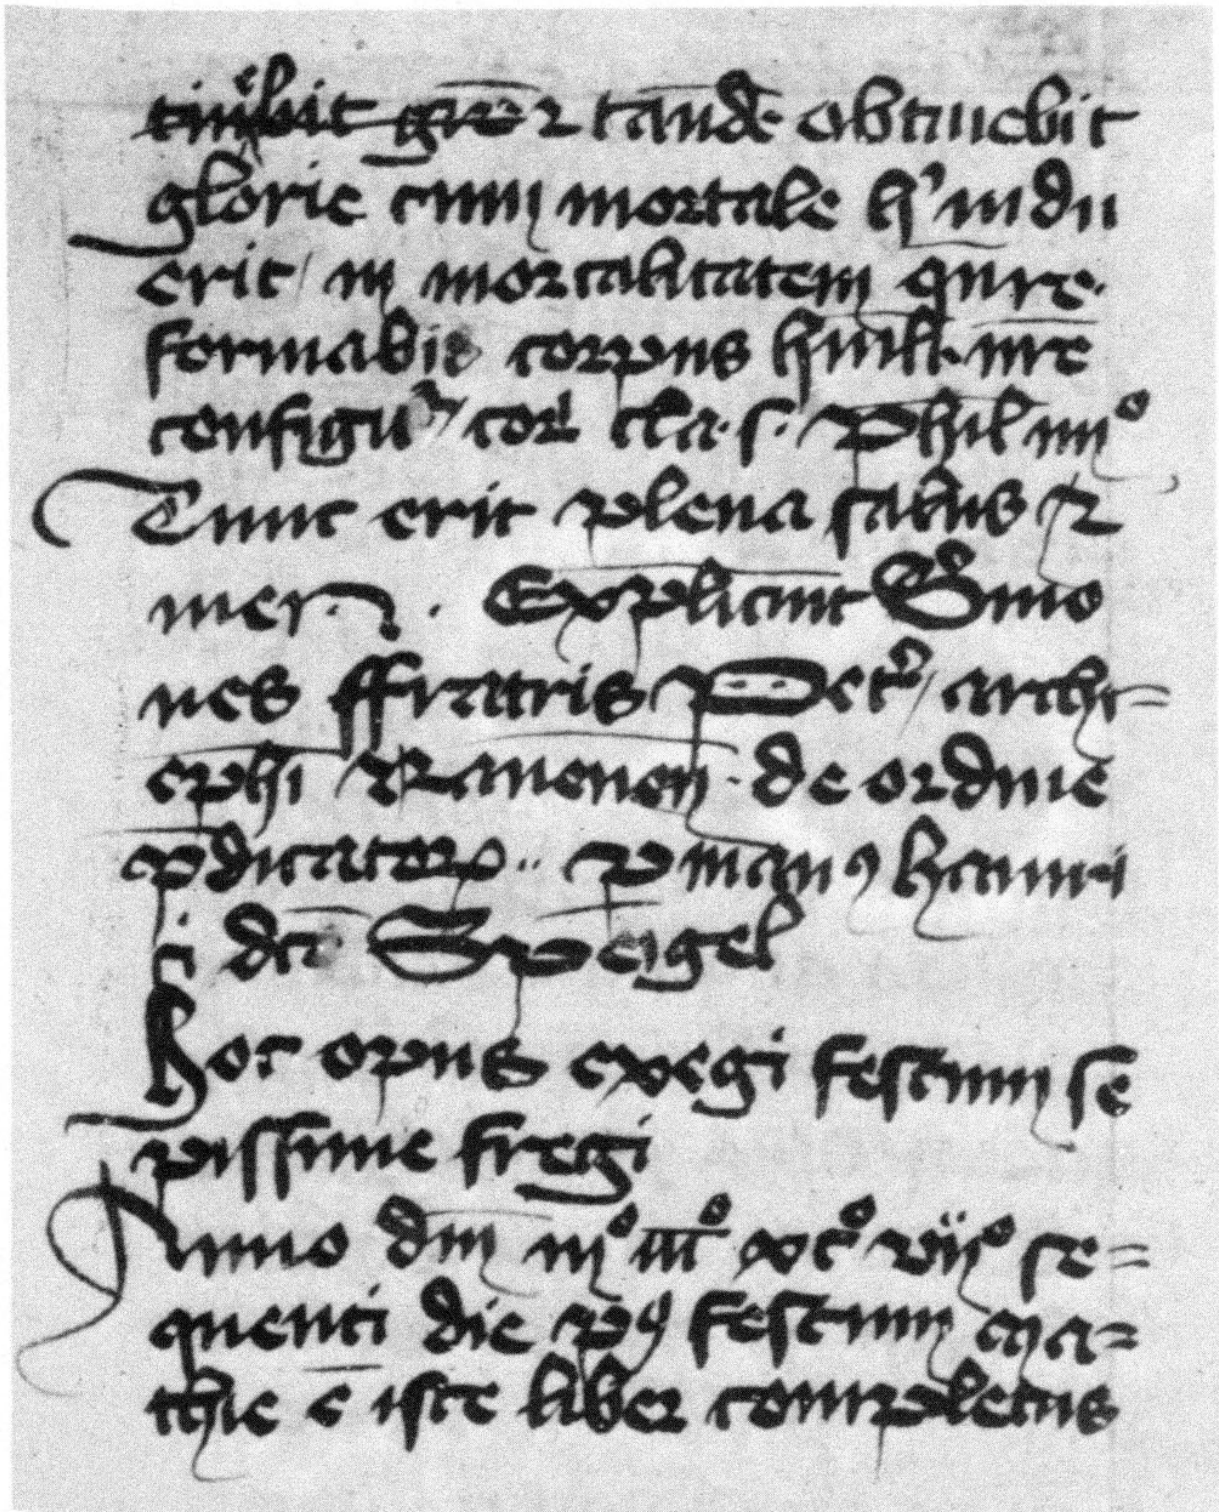 tinebit grē et tandē obtinebit
glorie cum mortale h' indu
erit / in mortalitatem qui re-
formabit corpus hūil. nr̄e
configuͬ cor cla. s. Phil iiijº
Tunc erit plena salus et
mer. Expliciunt Sermo
nes ffratris Petͥ / archi=
ep̄hi Rauenen̄. de ordine
p̄dicatorꝝ .. ꝑ manꝰ hainri
ci dc̄i Speigel
Hoc opus exegi festum se
pissime fregi
Anno dn̄i mº iiiͨº xcº viiº se=
quenti die pꝰ festum ma=
thie ē iste liber completus